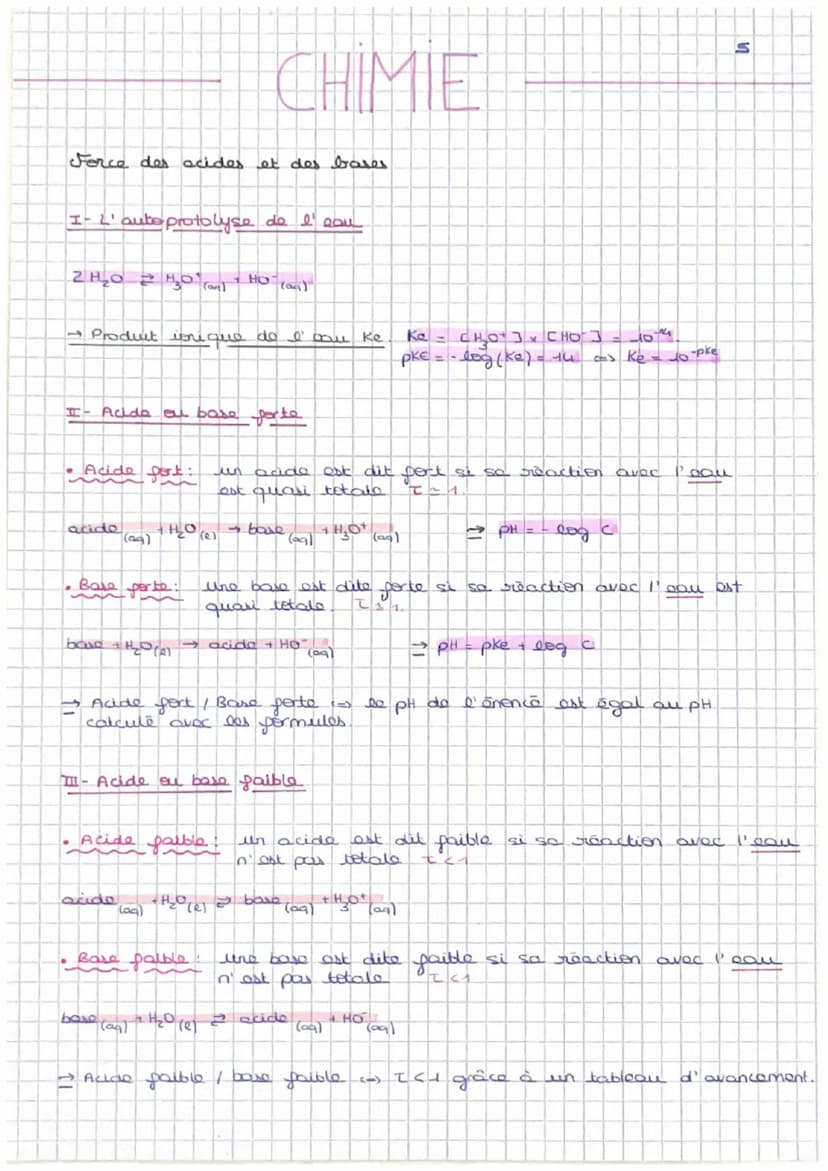 5
CHIMIE
Force des acides et des bases
I- L'autoprotolyse de l'eau
2 H₂O ⇄ H₃O⁺(aq) + HO⁻(aq)
→ Produit ionique de l'eau Ke. Ke = [H₃O⁺] x [HO⁻] = 10⁻¹⁴.
pKE = - log(Ke) = 14 <=> Ke = 10^-pKe
II- Acide ou base forte
• Acide fort : un acide est dit fort si sa réaction avec l'eau
est quasi totale τ = 1.
acide(aq) + H₂O(l) → base(aq) + H₃O⁺(aq) ⇒ pH = - log C
• Base forte : une base est dite forte si sa réaction avec l'eau est
quasi totale. τ = 1.
base + H₂O(l) → acide + HO⁻(aq) ⇒ pH = pKe + log C
⇒ Acide fort / Base forte <=> le pH de l'énoncé est égal au pH
calculé avec les formules.
III- Acide ou base faible
• Acide faible : un acide est dit faible si sa réaction avec l'eau
n'est pas totale τ < 1
acide(aq) + H₂O(l) ⇄ base(aq) + H₃O⁺(aq)
• Base faible : une base est dite faible si sa réaction avec l'eau
n'est pas totale τ < 1
base(aq) + H₂O(l) ⇄ acide(aq) + HO⁻(aq)
⇒ Acide faible / base faible <=> τ < 1 grâce à un tableau d'avancement.